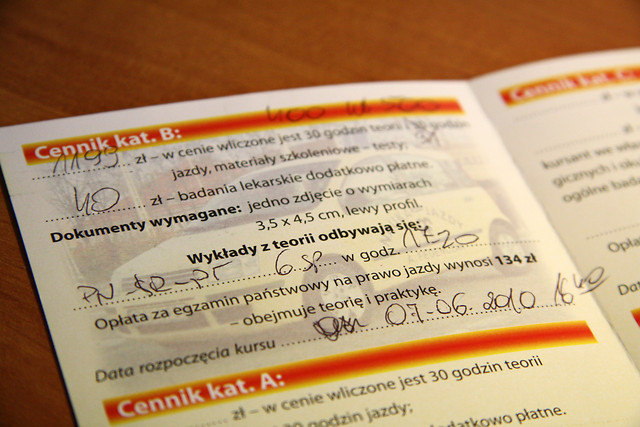 400 zł 500
Cennik kat. B:
1199 zł – w cenie wliczone jest 30 godzin teorii
jazdy, materiały szkoleniowe – testy;
40 zł – badania lekarskie dodatkowo płatne.
Dokumenty wymagane: jedno zdjęcie o wymiarach
3,5 x 4,5 cm, lewy profil.
Wykłady z teorii odbywają się:
PN ŚR – PT w godz. 1720
Opłata za egzamin państwowy na prawo jazdy wynosi 134 zł
– obejmuje teorię i praktykę.
Data rozpoczęcia kursu 07-06.2010 1640
Cennik kat. A:
zł – w cenie wliczone jest 30 godzin teorii
godzin jazdy;
dodatkowo płatne.
Cennik kat.
zł
kursant we
gicznych i
ogólne
Opła
Data